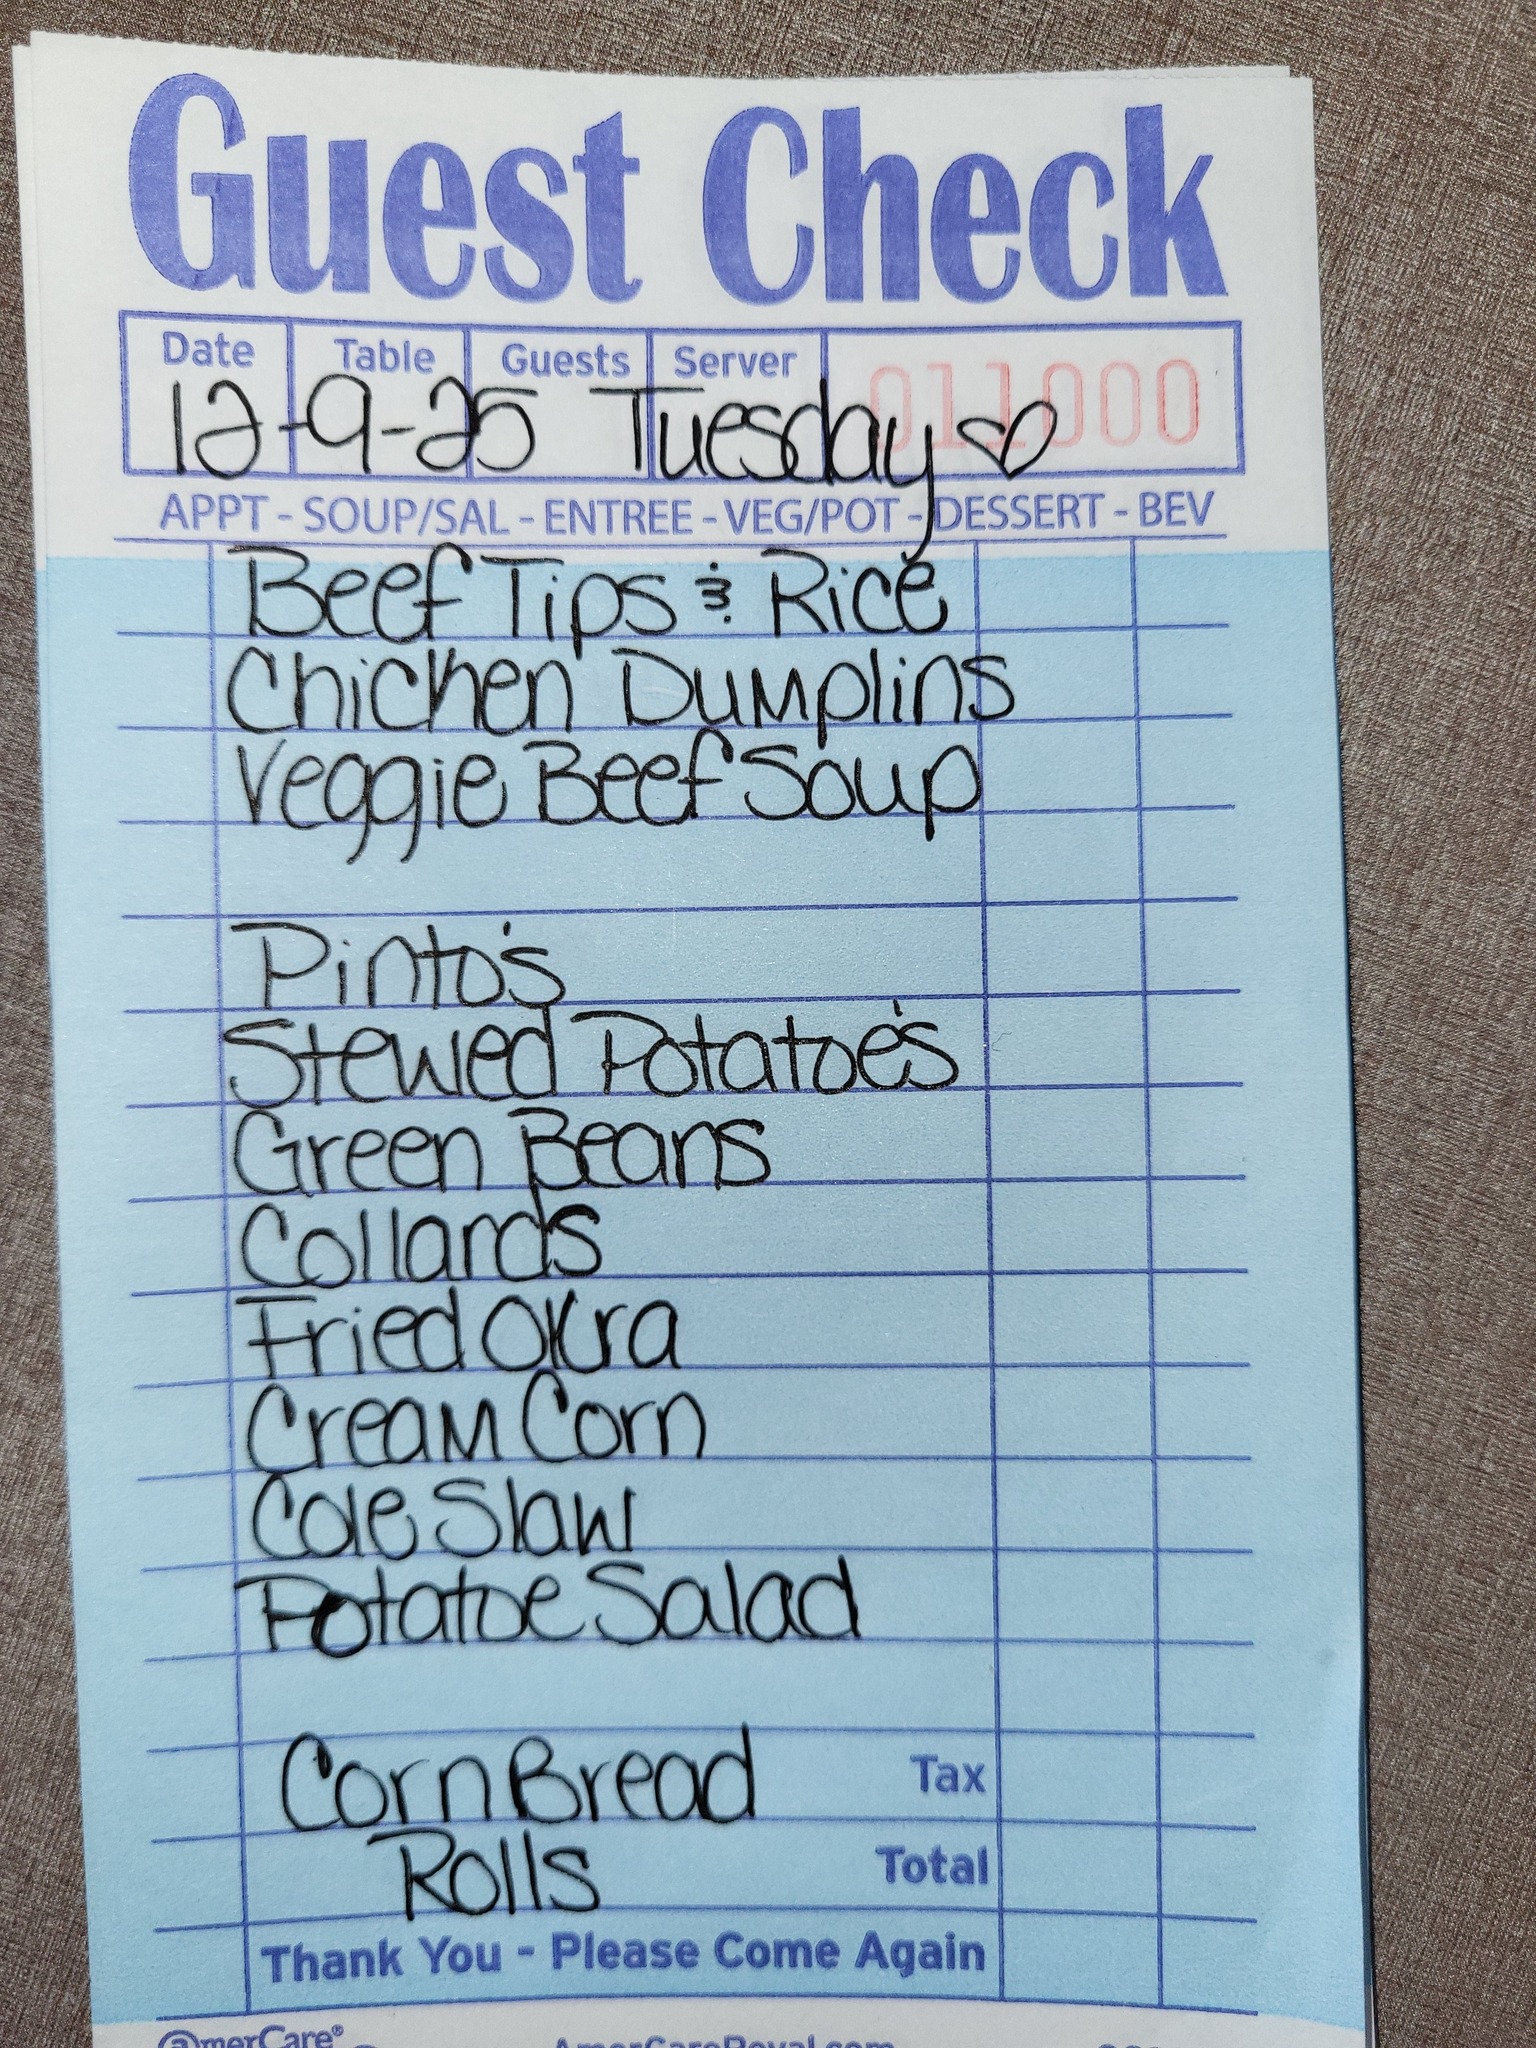 Guest Check
Date Table Guests Server 011000
12-9-25 Tuesday ♡
APPT - SOUP/SAL - ENTREE - VEG/POT - DESSERT - BEV
Beef Tips & Rice
Chicken Dumplins
Veggie Beef Soup
Pinto's
Stewed Potatoe's
Green Beans
Collards
Fried Okra
Cream Corn
Cole Slaw
Potatoe Salad
Corn Bread Tax
Rolls Total
Thank You - Please Come Again
AmerCare® AmerCareRoyal.com